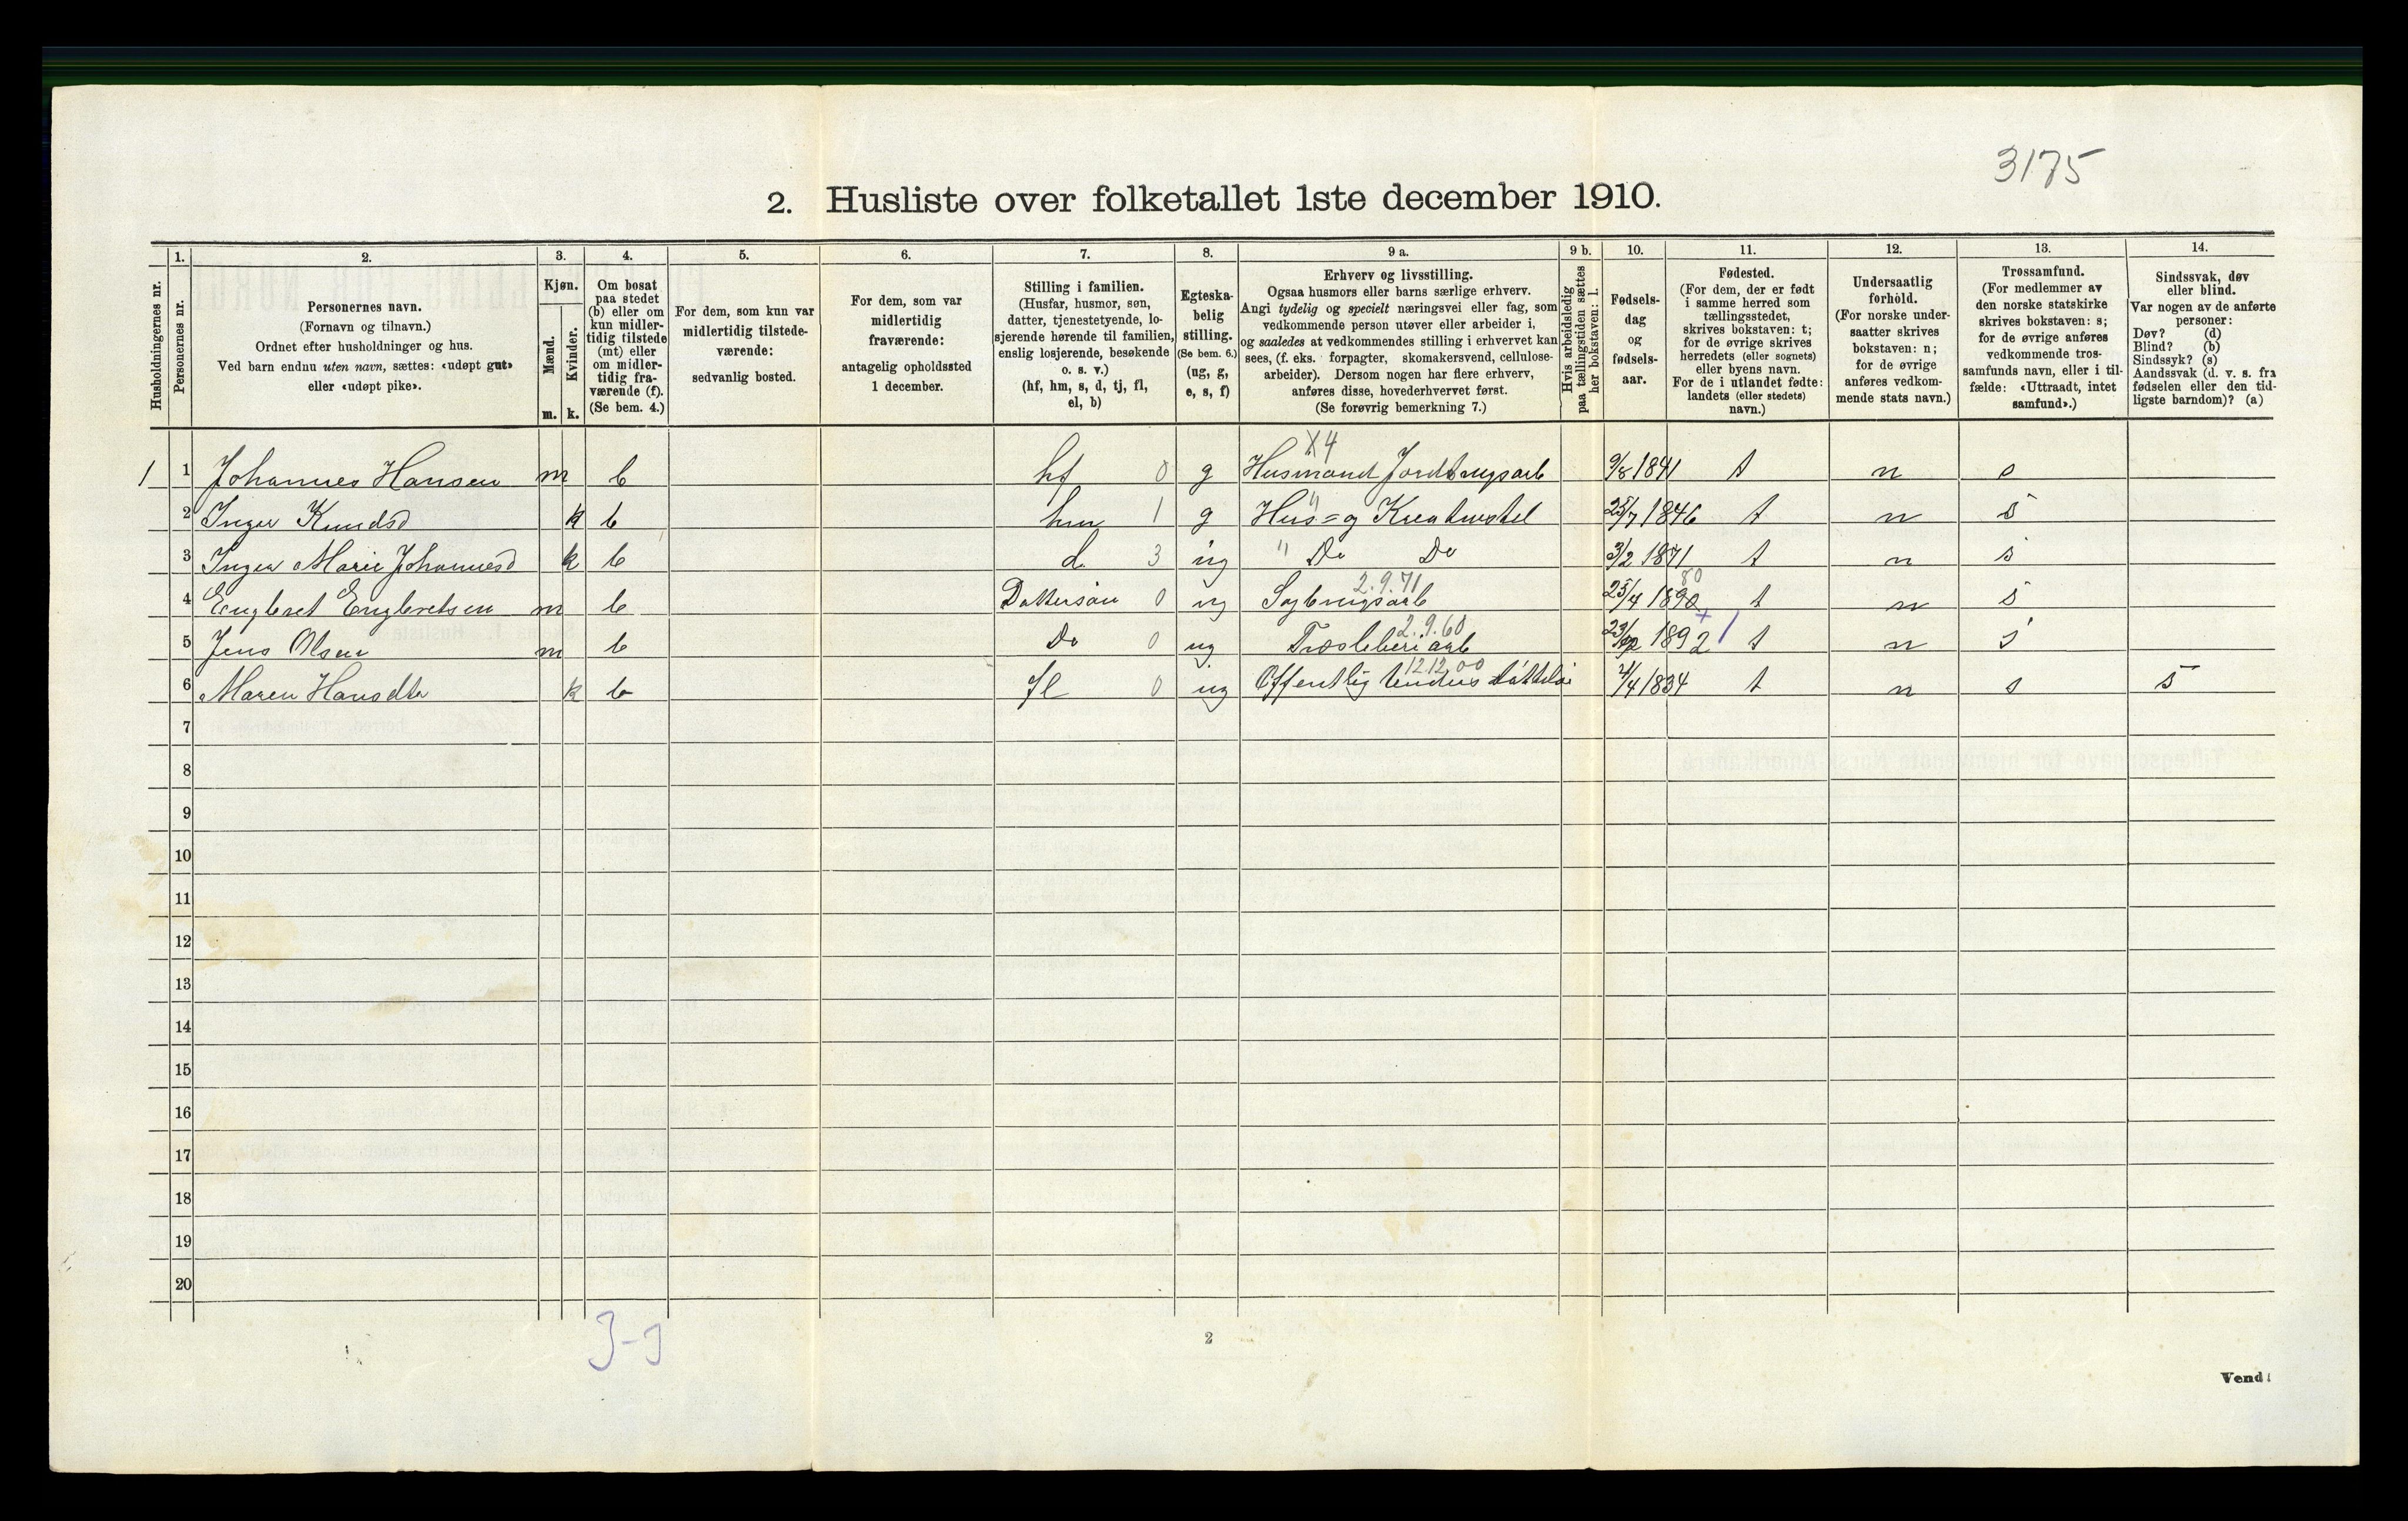 3175
2. Husliste over folketallet 1ste december 1910.
1. 2. 3. 4. 5. 6. 7. 8. 9 a. 9 b. 10. 11. 12. 13. 14.
Husholdningernes nr.
Personernes nr.
Personernes navn.
(Fornavn og tilnavn.)
Ordnet efter husholdninger og hus.
Ved barn endnu uten navn, sættes: «udøpt gut»
eller «udøpt pike».
Kjøn.
Mænd.
Kvinder.
m. k.
Om bosat
paa stedet
(b) eller om
kun midler-
tidig tilstede
(mt) eller
om midler-
tidig fra-
værende (f).
(Se bem. 4.)
For dem, som kun var
midlertidig tilstede-
værende:
sedvanlig bosted.
For dem, som var
midlertidig
fraværende:
antagelig opholdssted
1 december.
Stilling i familien.
(Husfar, husmor, søn,
datter, tjenestetyende, lo-
sjerende hørende til familien,
enslig losjerende, besøkende
o. s. v.)
(hf, hm, s, d, tj, fl,
el, b)
Egteska-
belig
stilling.
(Se bem. 6.)
(ug, g,
e, s, f)
Erhverv og livsstilling.
Ogsaa husmors eller barns særlige erhverv.
Angi tydelig og specielt næringsvei eller fag, som
vedkommende person utøver eller arbeider i,
og saaledes at vedkommendes stilling i erhvervet kan
sees, (f. eks. forpagter, skomakersvend, cellulose-
arbeider). Dersom nogen har flere erhverv,
anføres disse, hovederhvervet først.
(Se forøvrig bemerkning 7.)
Hvis arbeidsledig
paa tællingstiden sættes
her bokstaven: l.
Fødsels-
dag
og
fødsels-
aar.
Fødested.
(For dem, der er født
i samme herred som
tællingsstedet,
skrives bokstaven: t;
for de øvrige skrives
herredets (eller sognets)
eller byens navn.
For de i utlandet fødte:
landets (eller stedets)
navn.)
Undersaatlig
forhold.
(For norske under-
saatter skrives
bokstaven: n;
for de øvrige
anføres vedkom-
mende stats navn.)
Trossamfund.
(For medlemmer av
den norske statskirke
skrives bokstaven: s;
for de øvrige anføres
vedkommende tros-
samfunds navn, eller i til-
fælde: «Uttraadt, intet
samfund».)
Sindssvak, døv
eller blind.
Var nogen av de anførte
personer:
Døv? (d)
Blind? (b)
Sindssyk? (s)
Aandssvak (d. v. s. fra
fødselen eller den tid-
ligste barndom)? (a)
X4
1 1 Johannes Hansen m b hf 0 g Husmand Jordbrugsarb 9/8 1841 t n s
2 Inger Knudsd k b hm 1 g Hus= og Kreaturstel 25/7 1846 t n s
3 Inger Marie Johannesd k b d 3 ug " Do Do 3/2 1871 t n s
2.9.71 80
4 Engbret Engbretsen m b Dattersøn 0 ug Sagbrugsarb 25/4 1890 t n s
2.9.60
5 Jens Olsen m b Do 0 ug Træsliberiarb 1892 t n s
12.12.00
6 Maren Hansdtr k b fl 0 ug Offentlig 4/4 1834 t n s s
7
8
9
10
11
12
13
14
15
16
17
18
19
20
3-3
2
Vend!